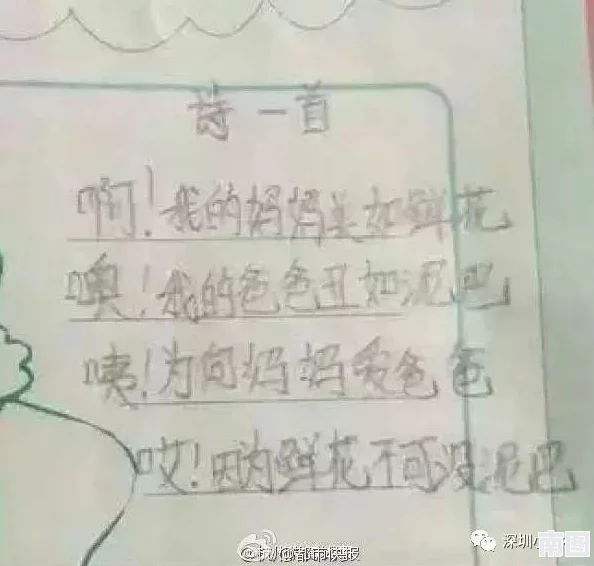 诗一首
啊!我的妈妈美如鲜花
噢!我的爸爸丑如泥巴
咦!为何妈妈爱爸爸
哎!因为鲜花不可没泥巴
@都市快报
深圳小
南图